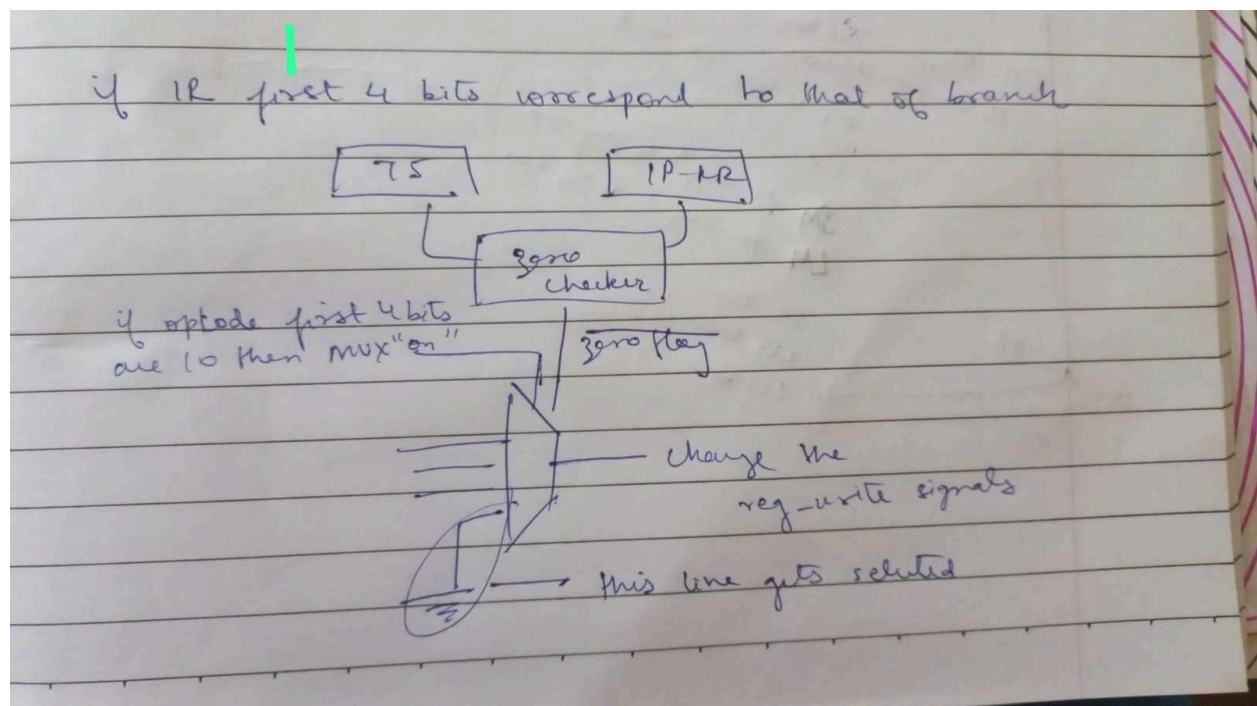 if IR first 4 bits correspond to that of branch
TS
IP-
zero
checker
if optode first 4 bits
are 10 then MUX "on"
zero flag
change the
reg-write signals
this line gets seluted